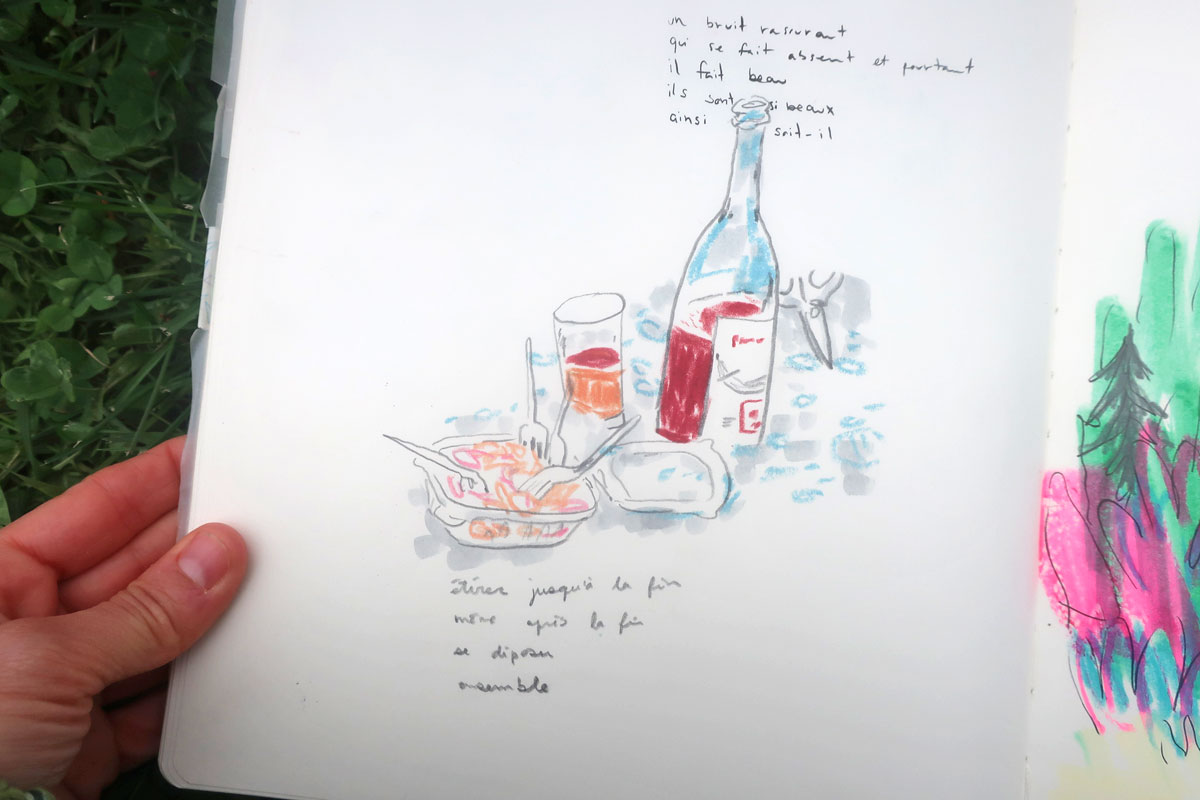 un bruit rassurant
qui se fait absent et pourtant
il fait beau
ils sont si beaux
ainsi soit-il
étirer jusqu'à la fin
même après la fin
se
ensemble